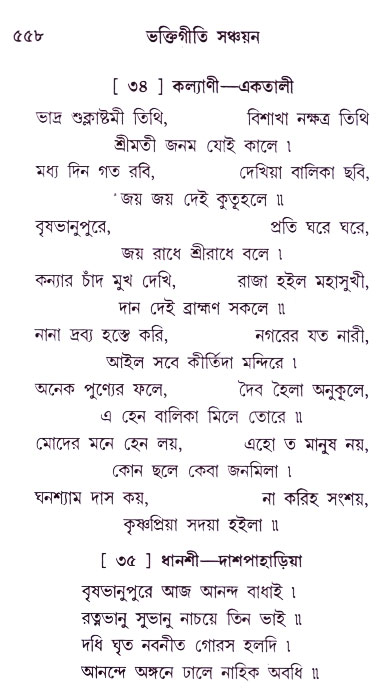 ৫৫৮ ভক্তিগীতি সঞ্চয়ন
[ ৩৪ ] কল্যাণী—একতালী
ভাদ্র শুক্লাষ্টমী তিথি, বিশাখা নক্ষত্র তিথি
শ্রীমতী জনম যোই কালে ৷
মধ্য দিন গত রবি, দেখিয়া বালিকা ছবি,
জয় জয় দেই কুতূহলে ॥
বৃষভানুপুরে, প্রতি ঘরে ঘরে,
জয় রাধে শ্রীরাধে বলে ৷
কন্যার চাঁদ মুখ দেখি, রাজা হইল মহাসুখী,
দান দেই ব্রাহ্মণ সকলে ॥
নানা দ্রব্য হস্তে করি, নগরের যত নারী,
আইল সবে কীর্তিদা মন্দিরে ৷
অনেক পুণ্যের ফলে, দৈব হৈলা অনুকূলে,
এ হেন বালিকা মিলে তোরে ॥
মোদের মনে হেন লয়, এহো ত মানুষ নয়,
কোন ছলে কেবা জনমিলা ৷
ঘনশ্যাম দাস কয়, না করিহ সংশয়,
কৃষ্ণপ্রিয়া সদয়া হইলা ॥
[ ৩৫ ] ধানশী—দাশপাহাড়িয়া
বৃষভানুপুরে আজ আনন্দ বাধাই ৷
রত্নভানু সুভানু নাচয়ে তিন ভাই ॥
দধি ঘৃত নবনীত গোরস হলদি ৷
আনন্দে অঙ্গনে ঢালে নাহিক অবধি ॥